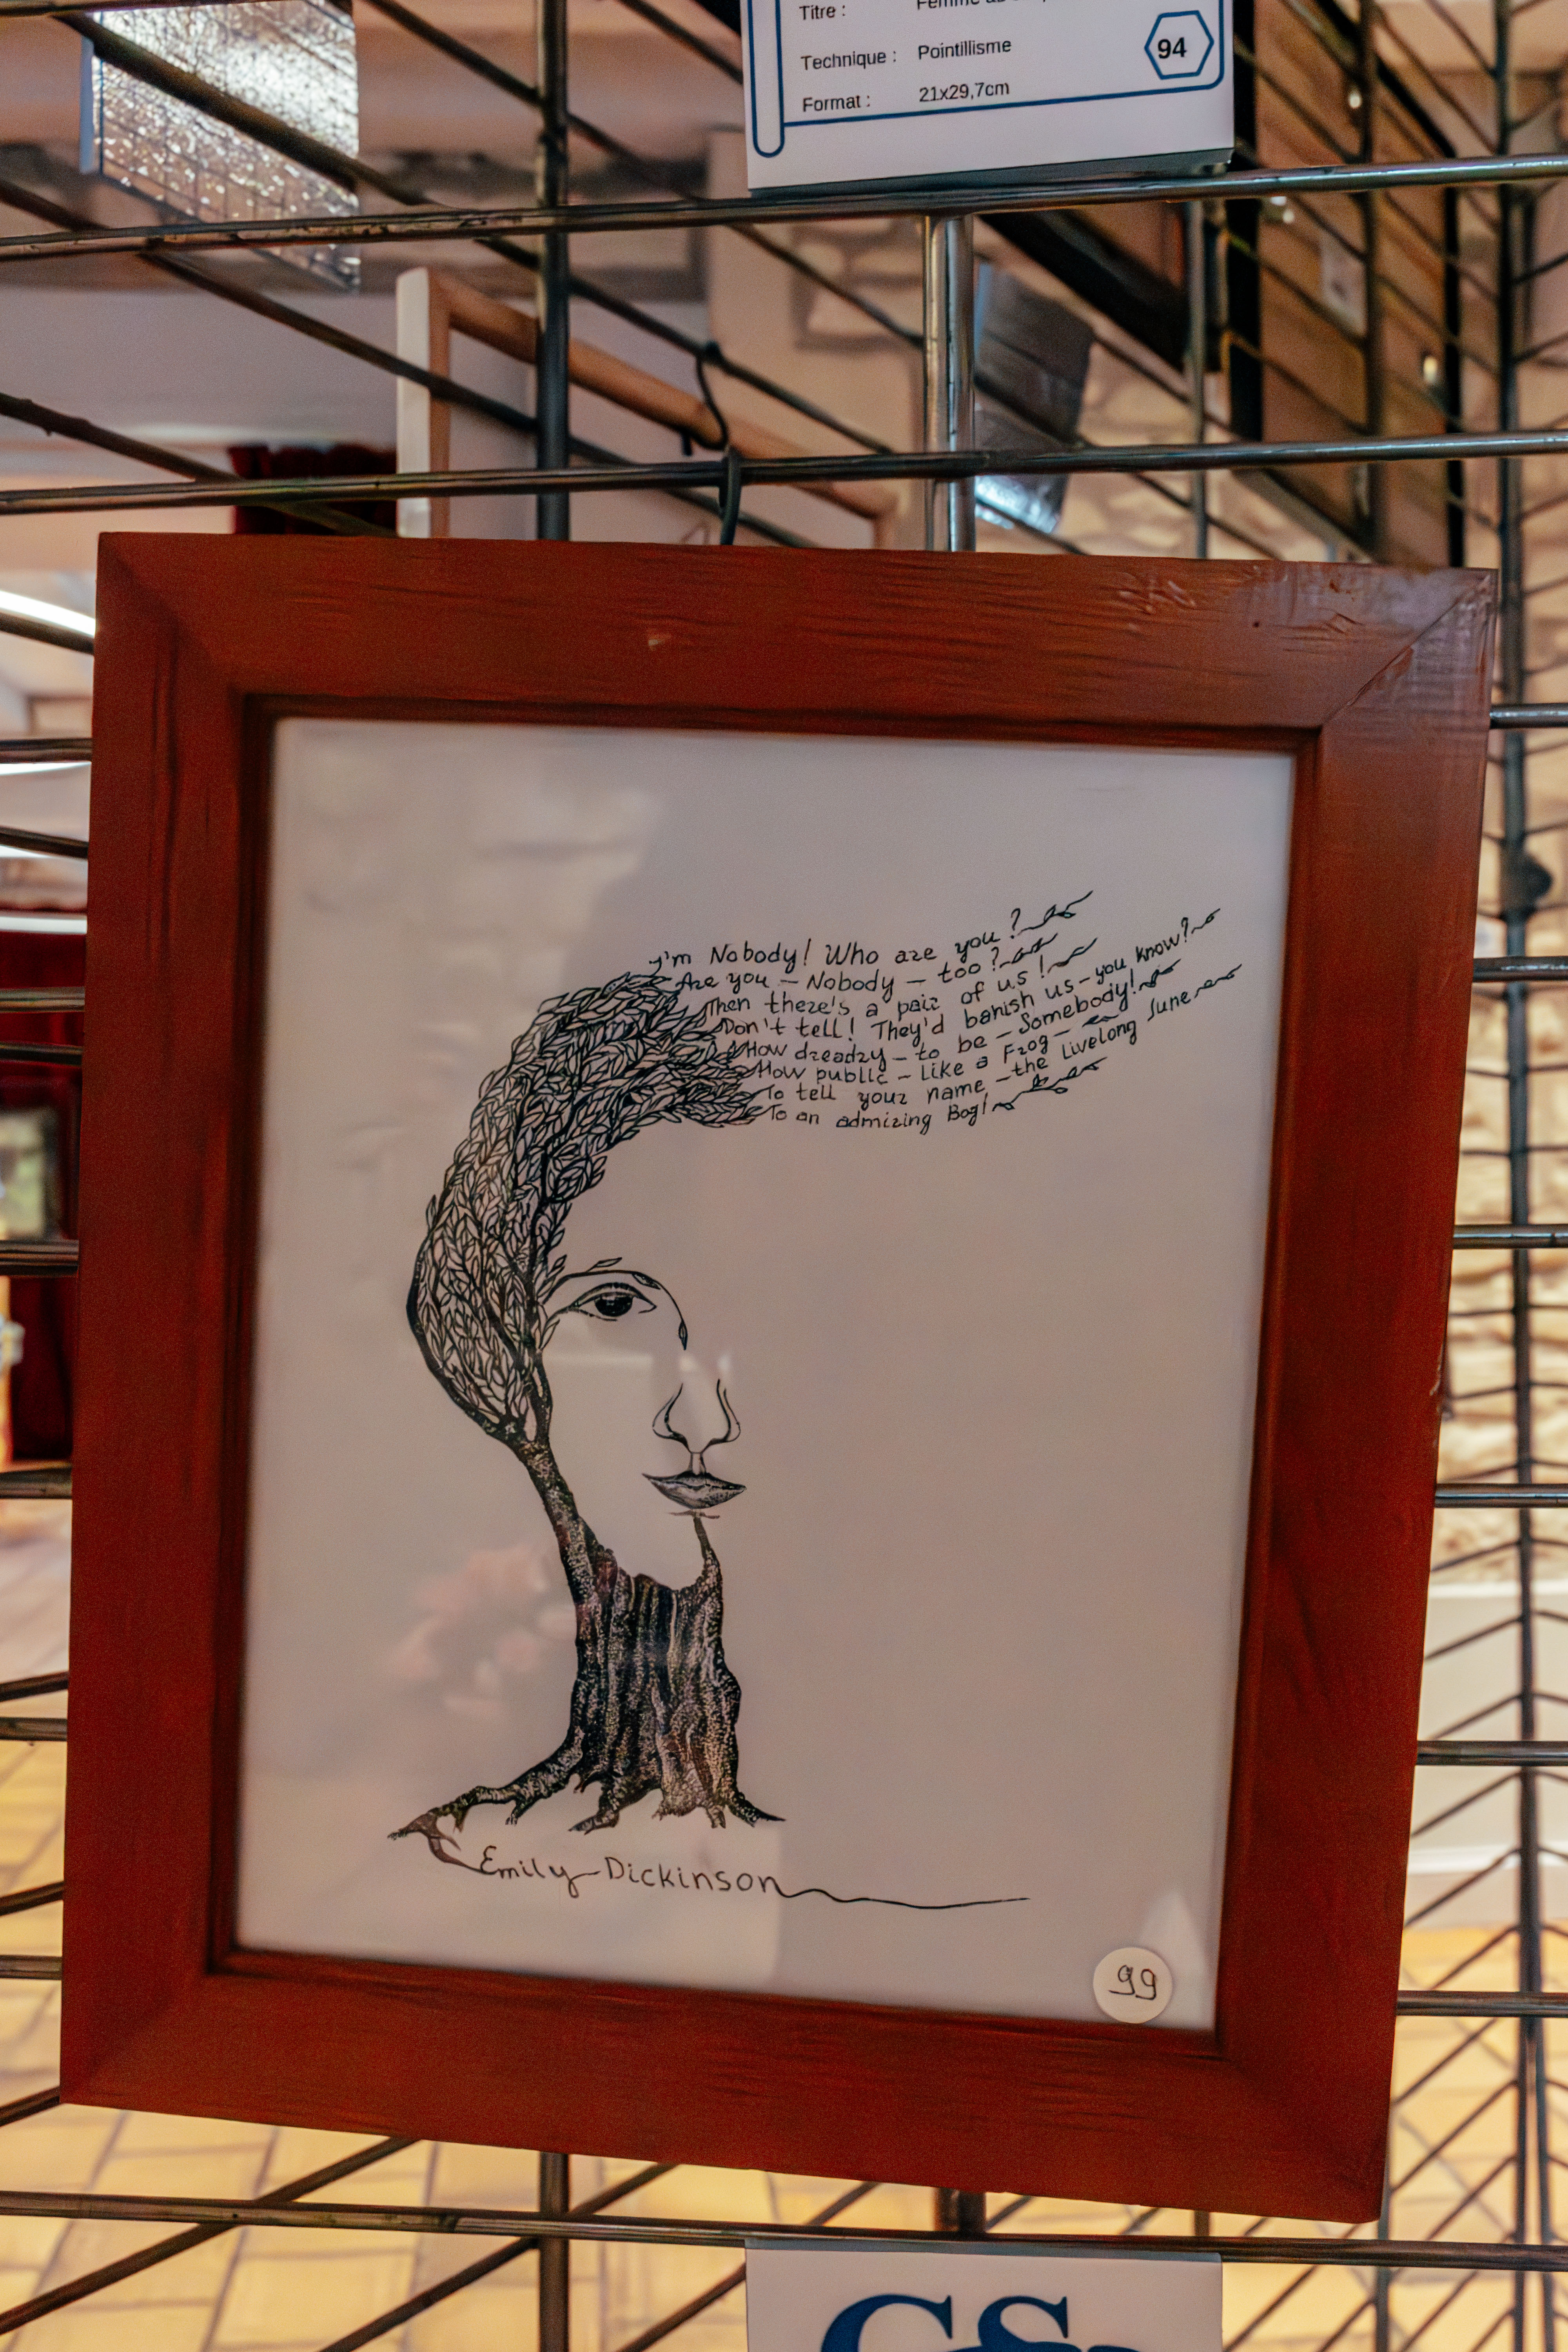 Titre :
Technique : Pointillisme
Format : 21x29,7cm
94
I'm Nobody! Who are you?
Are you – Nobody – too?
Then there's a pair of us!
Don't tell! They'd banish us – you know?
How dreadry – to be – Somebody!
How public – like a Frog –
To tell your name – the livelong June
To an admiring Bog!
Emily Dickinson
99